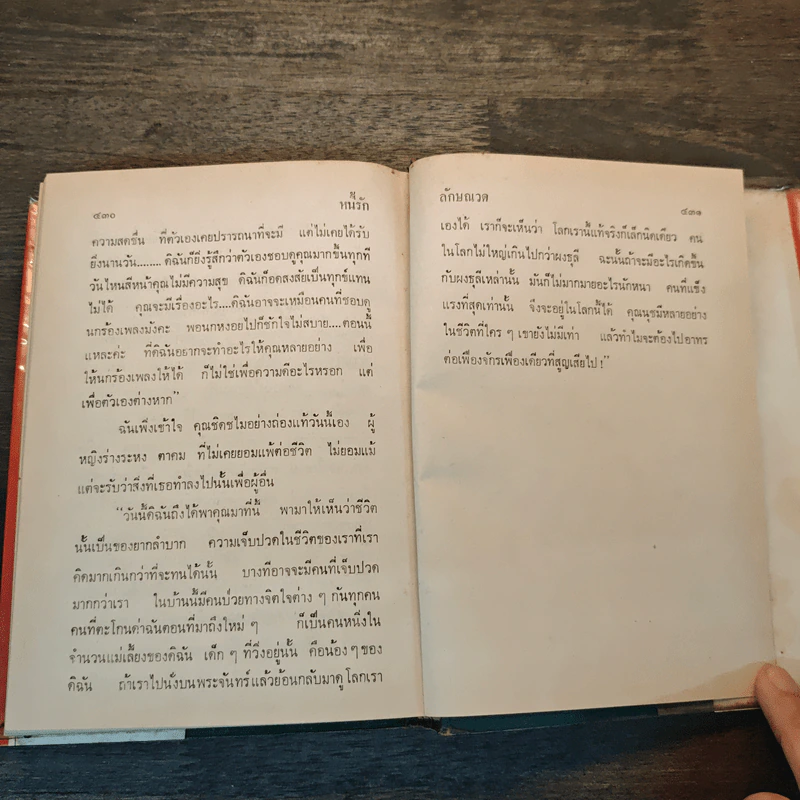 ๔๓๐
หนี้รัก
ความสดชื่น ที่ตัวเองเคยปรารถนาที่จะมี แต่ไม่เคยได้รับ
ยิ่งนานวัน........ดิฉันก็ยิ่งรู้สึกว่าตัวเองชอบดูคุณมากขึ้นทุกที
วันไหนสีหน้าคุณไม่มีความสุข ดิฉันก็อดสงสัยเป็นทุกข์แทน
ไม่ได้ คุณจะมีเรื่องอะไร....ดิฉันอาจจะเหมือนคนที่ชอบดู
นกร้องเพลงมังคะ พอนกหงอยไปก็ชักใจไม่สบาย....ตอนนี้
แหละค่ะ ที่ดิฉันอยากจะทำอะไรให้คุณหลายอย่าง เพื่อ
ให้นกร้องเพลงให้ได้ ก็ไม่ใช่เพื่อความดีอะไรหรอก แต่
เพื่อตัวเองต่างหาก”
ฉันเพิ่งเข้าใจ คุณชิดชไมอย่างถ่องแท้วันนี้เอง ผู้
หญิงร่างระหง ตาคม ที่ไม่เคยยอมแพ้ต่อชีวิต ไม่ยอมแม้
แต่จะรับว่าสิ่งที่เธอทำลงไปนั้นเพื่อผู้อื่น
“วันนี้ดิฉันถึงได้พาคุณมาที่นี่ พามาให้เห็นว่าชีวิต
นั้นเป็นของยากลำบาก ความเจ็บปวดในชีวิตของเราที่เรา
คิดมากเกินกว่าที่จะทนได้นั้น บางทีอาจจะมีคนที่เจ็บปวด
มากกว่าเรา ในบ้านนี้มีคนป่วยทางจิตใจต่าง ๆ กันทุกคน
คนที่ตะโกนด่าฉันตอนที่มาถึงใหม่ ๆ ก็เป็นคนหนึ่งใน
จำนวนแม่เลี้ยงของดิฉัน เด็ก ๆ ที่วิ่งอยู่นั้น คือน้อง ๆ ของ
ดิฉัน ถ้าเราไปนั่งบนพระจันทร์แล้วย้อนกลับมาดูโลกเรา
ลักษณวดี
๔๓๑
เองได้ เราก็จะเห็นว่า โลกเรานี้แท้จริงก็เล็กนิดเดียว คน
ในโลกไม่ใหญ่เกินไปกว่าผงธุลี ฉะนั้นถ้าจะมีอะไรเกิดขึ้น
กับผงธุลีเหล่านั้น มันก็ไม่มากมายอะไรนักหนา คนที่แข็ง
แรงที่สุดเท่านั้น จึงจะอยู่ในโลกนี้ได้ คุณนุชมีหลายอย่าง
ในชีวิตที่ใคร ๆ เขายังไม่มีเท่า แล้วทำไมจะต้องไปอาทร
ต่อเฟืองจักรเฟืองเดียวที่สูญเสียไป !”